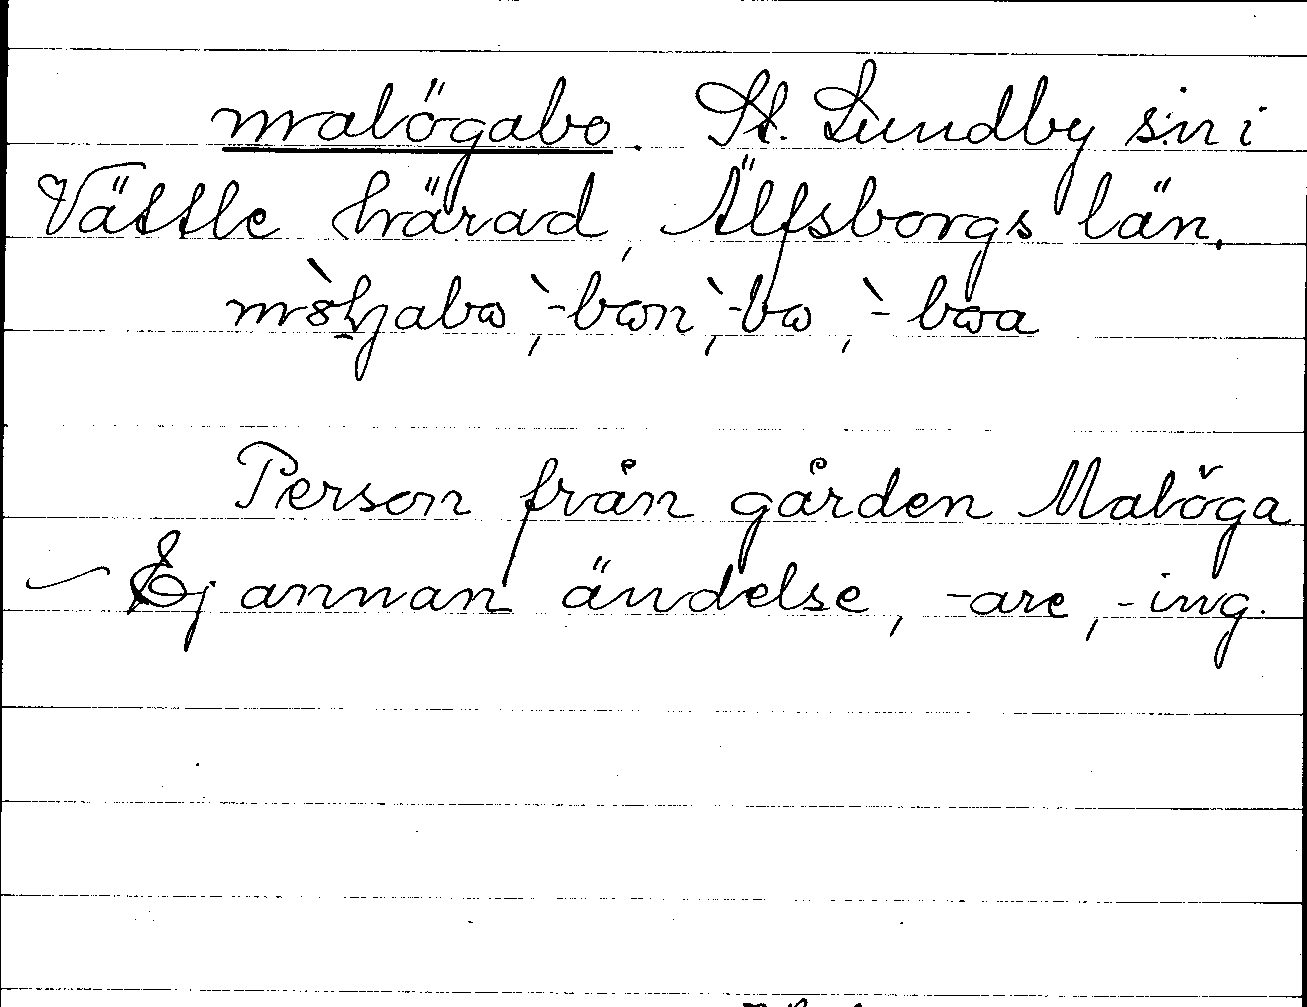 malögabo. St. Lundby s:n i
Vättle härad, Älfsborgs län.
-bon, -bo, -boa
Person från gården Malöga
Ej annan ändelse, -are, -ing.